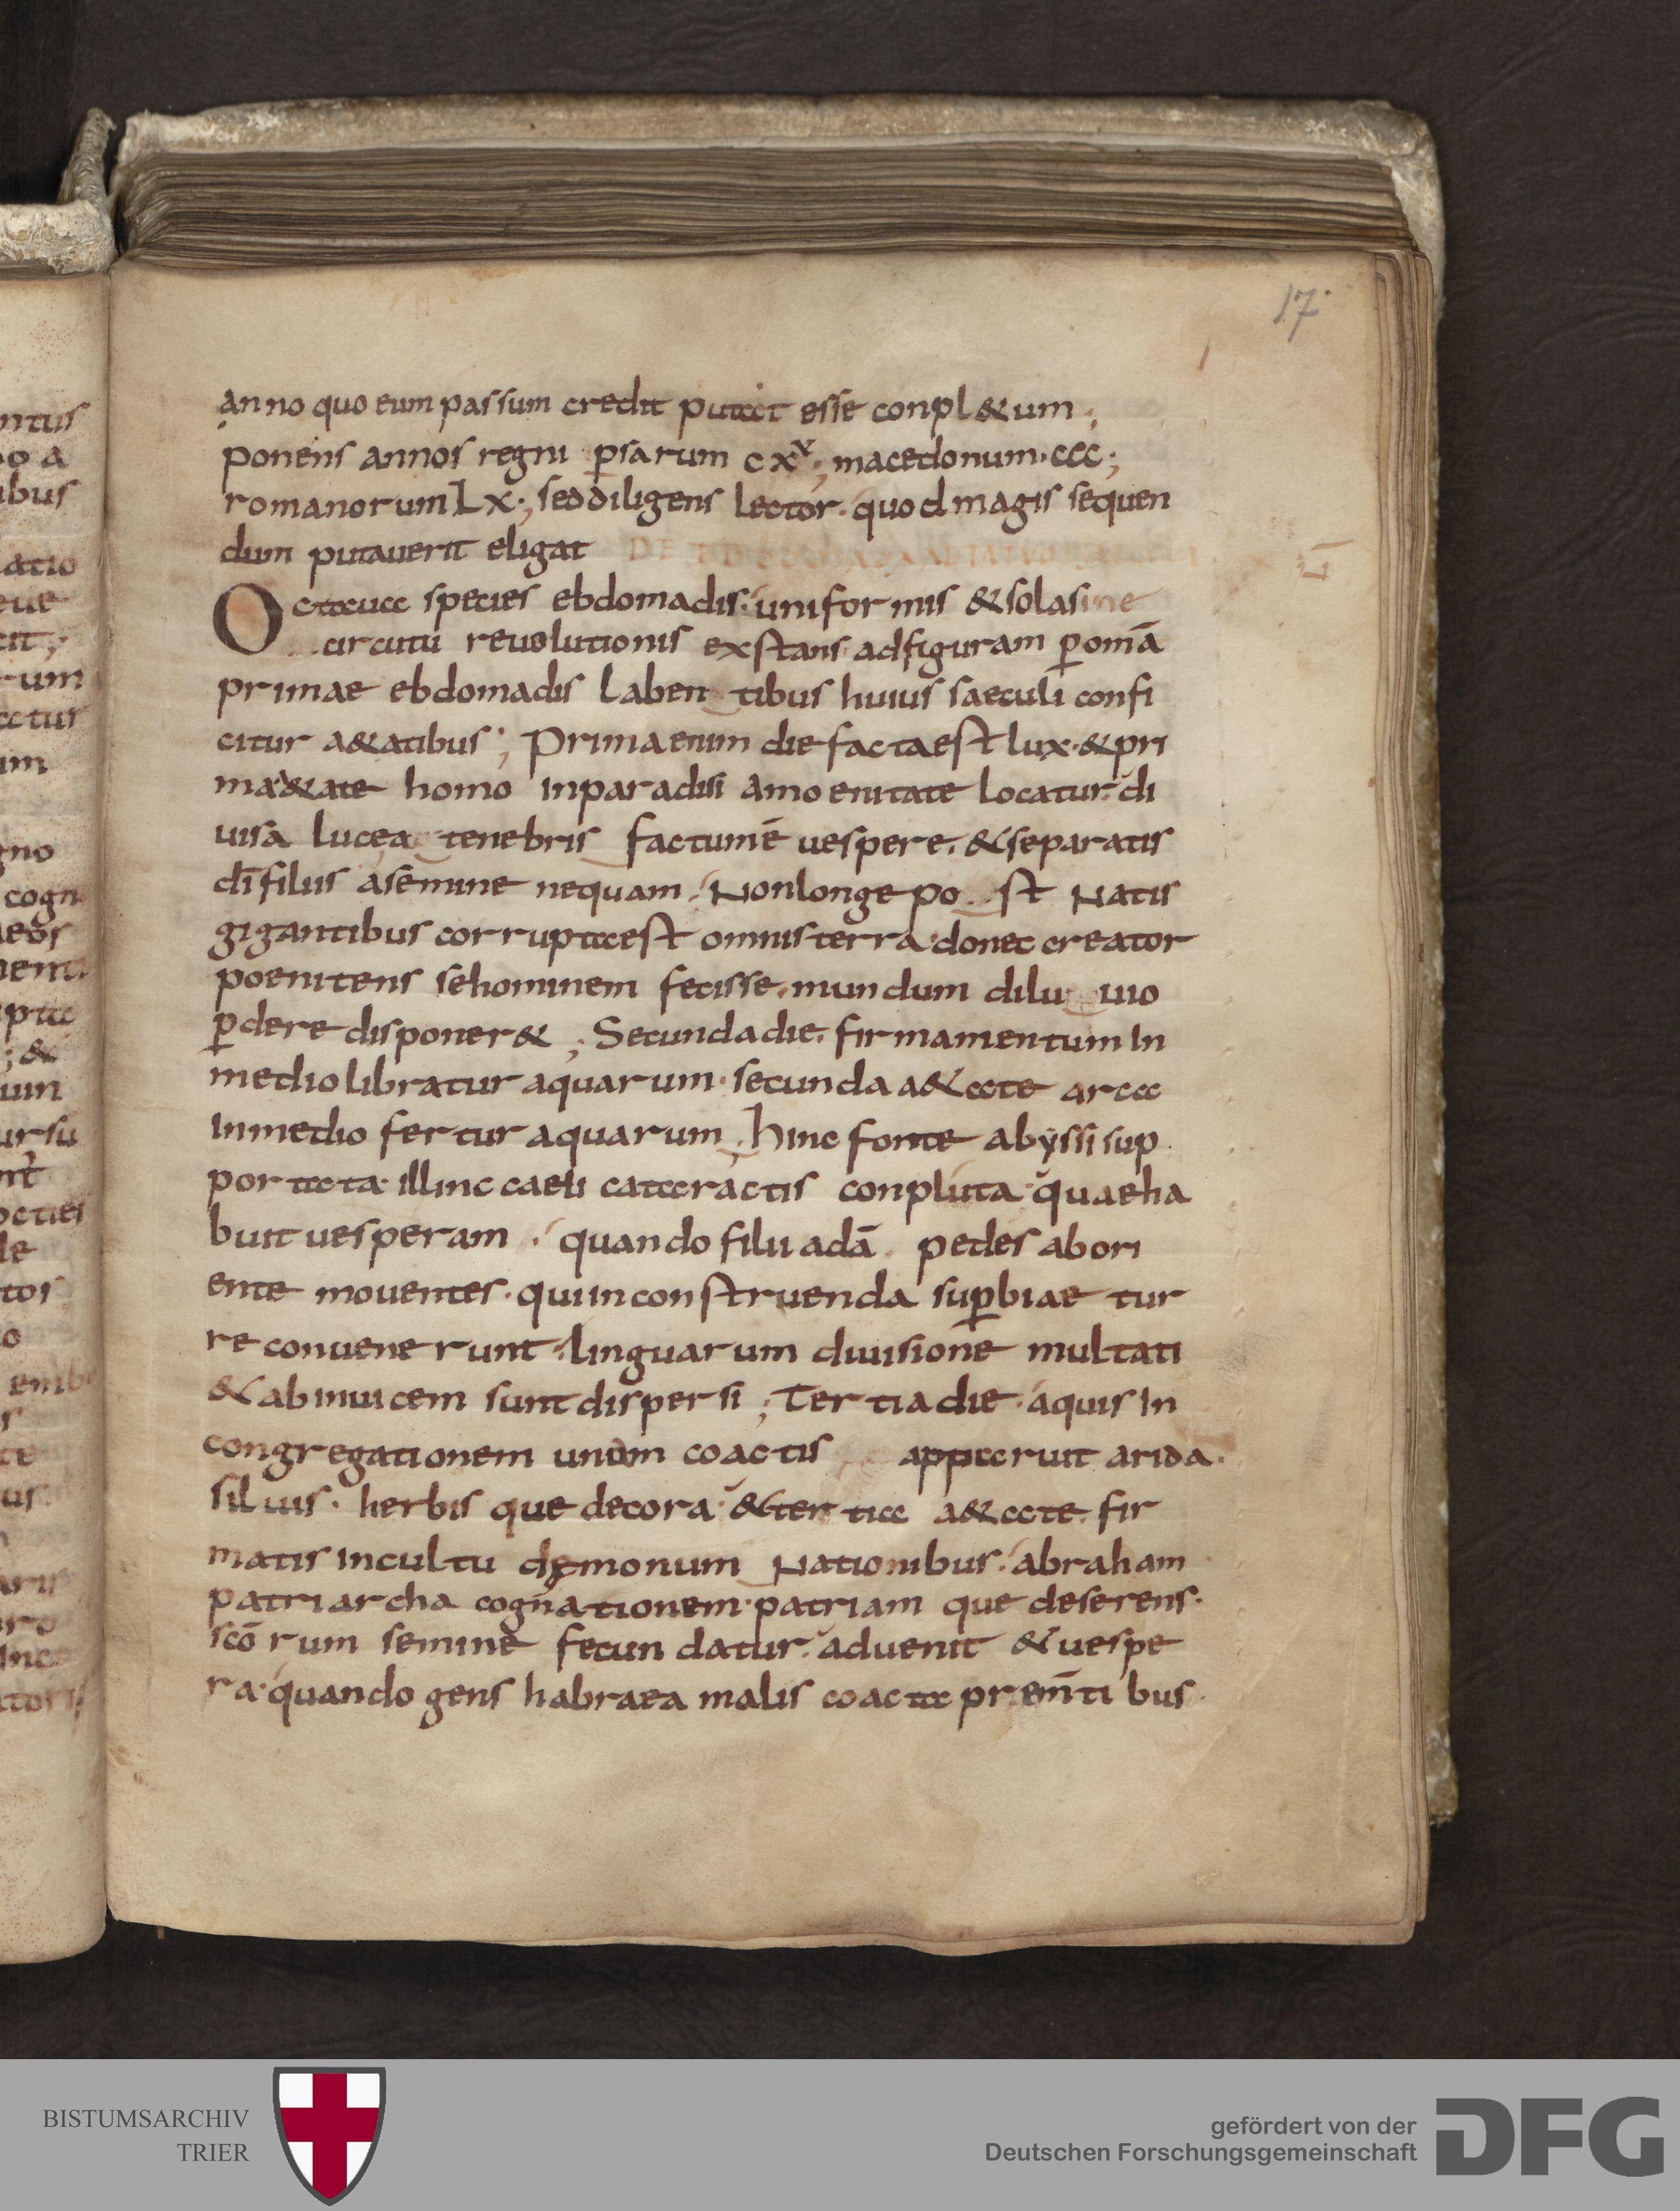 17
anno quo eum passum credit putat esse conpl&um;
ponens annos regni p̄sarum cxx; macedonum·ccc;
romanorum Lx·; sed diligens lector· quod magis sequen
dum putauerit eligat DE
Octaua species ebdomadis· uniformis & sola sine
circuitu reuolutionis exstans ad figuram p̄ omā
primae ebdomadis laben tibus huius saeculi confi
citur a&atibus; Prima enim die facta est lux·& pri
ma &ate homo in paradisi amoenitate locatur· di
uisa luce a tenebris factum ē uespere·& separatis
dī filiis a semine nequam· Non longe po st natis
gigantibus corrupta est omnis terra· donec creator
poenitens se hominem fecisse· mundum dilu uio
p̄dere disponer&; Secunda die· firmamentum in
medio libratur aquarum· secunda a&ate arca
in medio fertur aquarum, hinc fonte abyssi sup
portata· illinc caeli cataractis conpluta· quae ha
buit uesperam· quando filii adā pedes ab ori
ente mouentes· qui in construenda sup̄biae tur
re conuenerunt· linguarum diuisione multati
& ab inuicem sunt dispersi; Tertia die· aquis in
congregationem unam coactis apparuit arida·
siluis· herbis que decora· & tertia a&ate· fir
matis in cultu dęmonum Nationibus· abraham
patriarcha cognationem· patriam que deserens·
scōrum semine fecundatur· aduenit & uespe
ra· quando gens habraea malis coacta prem̄tibus·
BISTUMSARCHIV
TRIER
gefördert von der
Deutschen Forschungsgemeinschaft
DFG